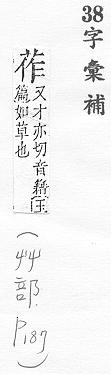 38字彙補
莋 又才亦切音籍［玉
篇如草也
(艸部. P187)